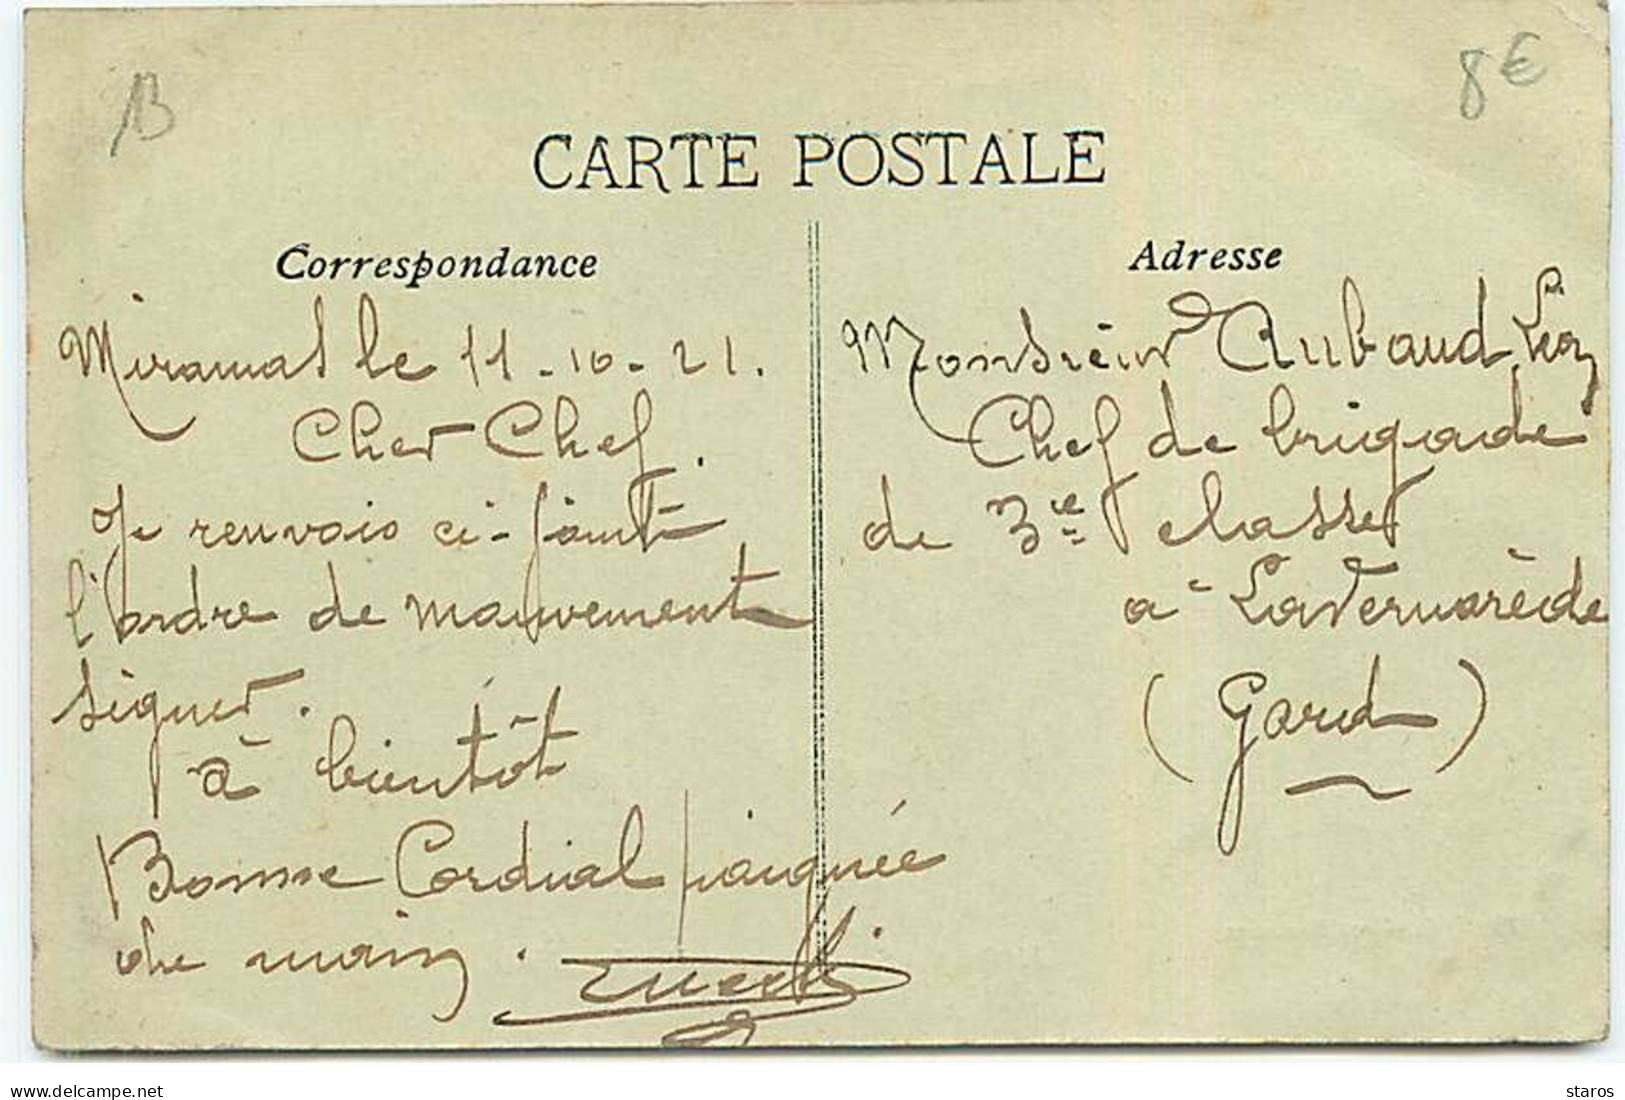 B
8€
CARTE POSTALE
Correspondance
Miramas le 11-10-21.
Cher Chef.
Je renvois ci-joint
l'ordre de mouvement
signer.
à bientôt
Bonne Cordial poignée
de main.
Adresse
Monsieur Aubaud Léon
Chef de brigade
de 3ie classe
à LaVernarède
(Gard)
delcampe.net
staros